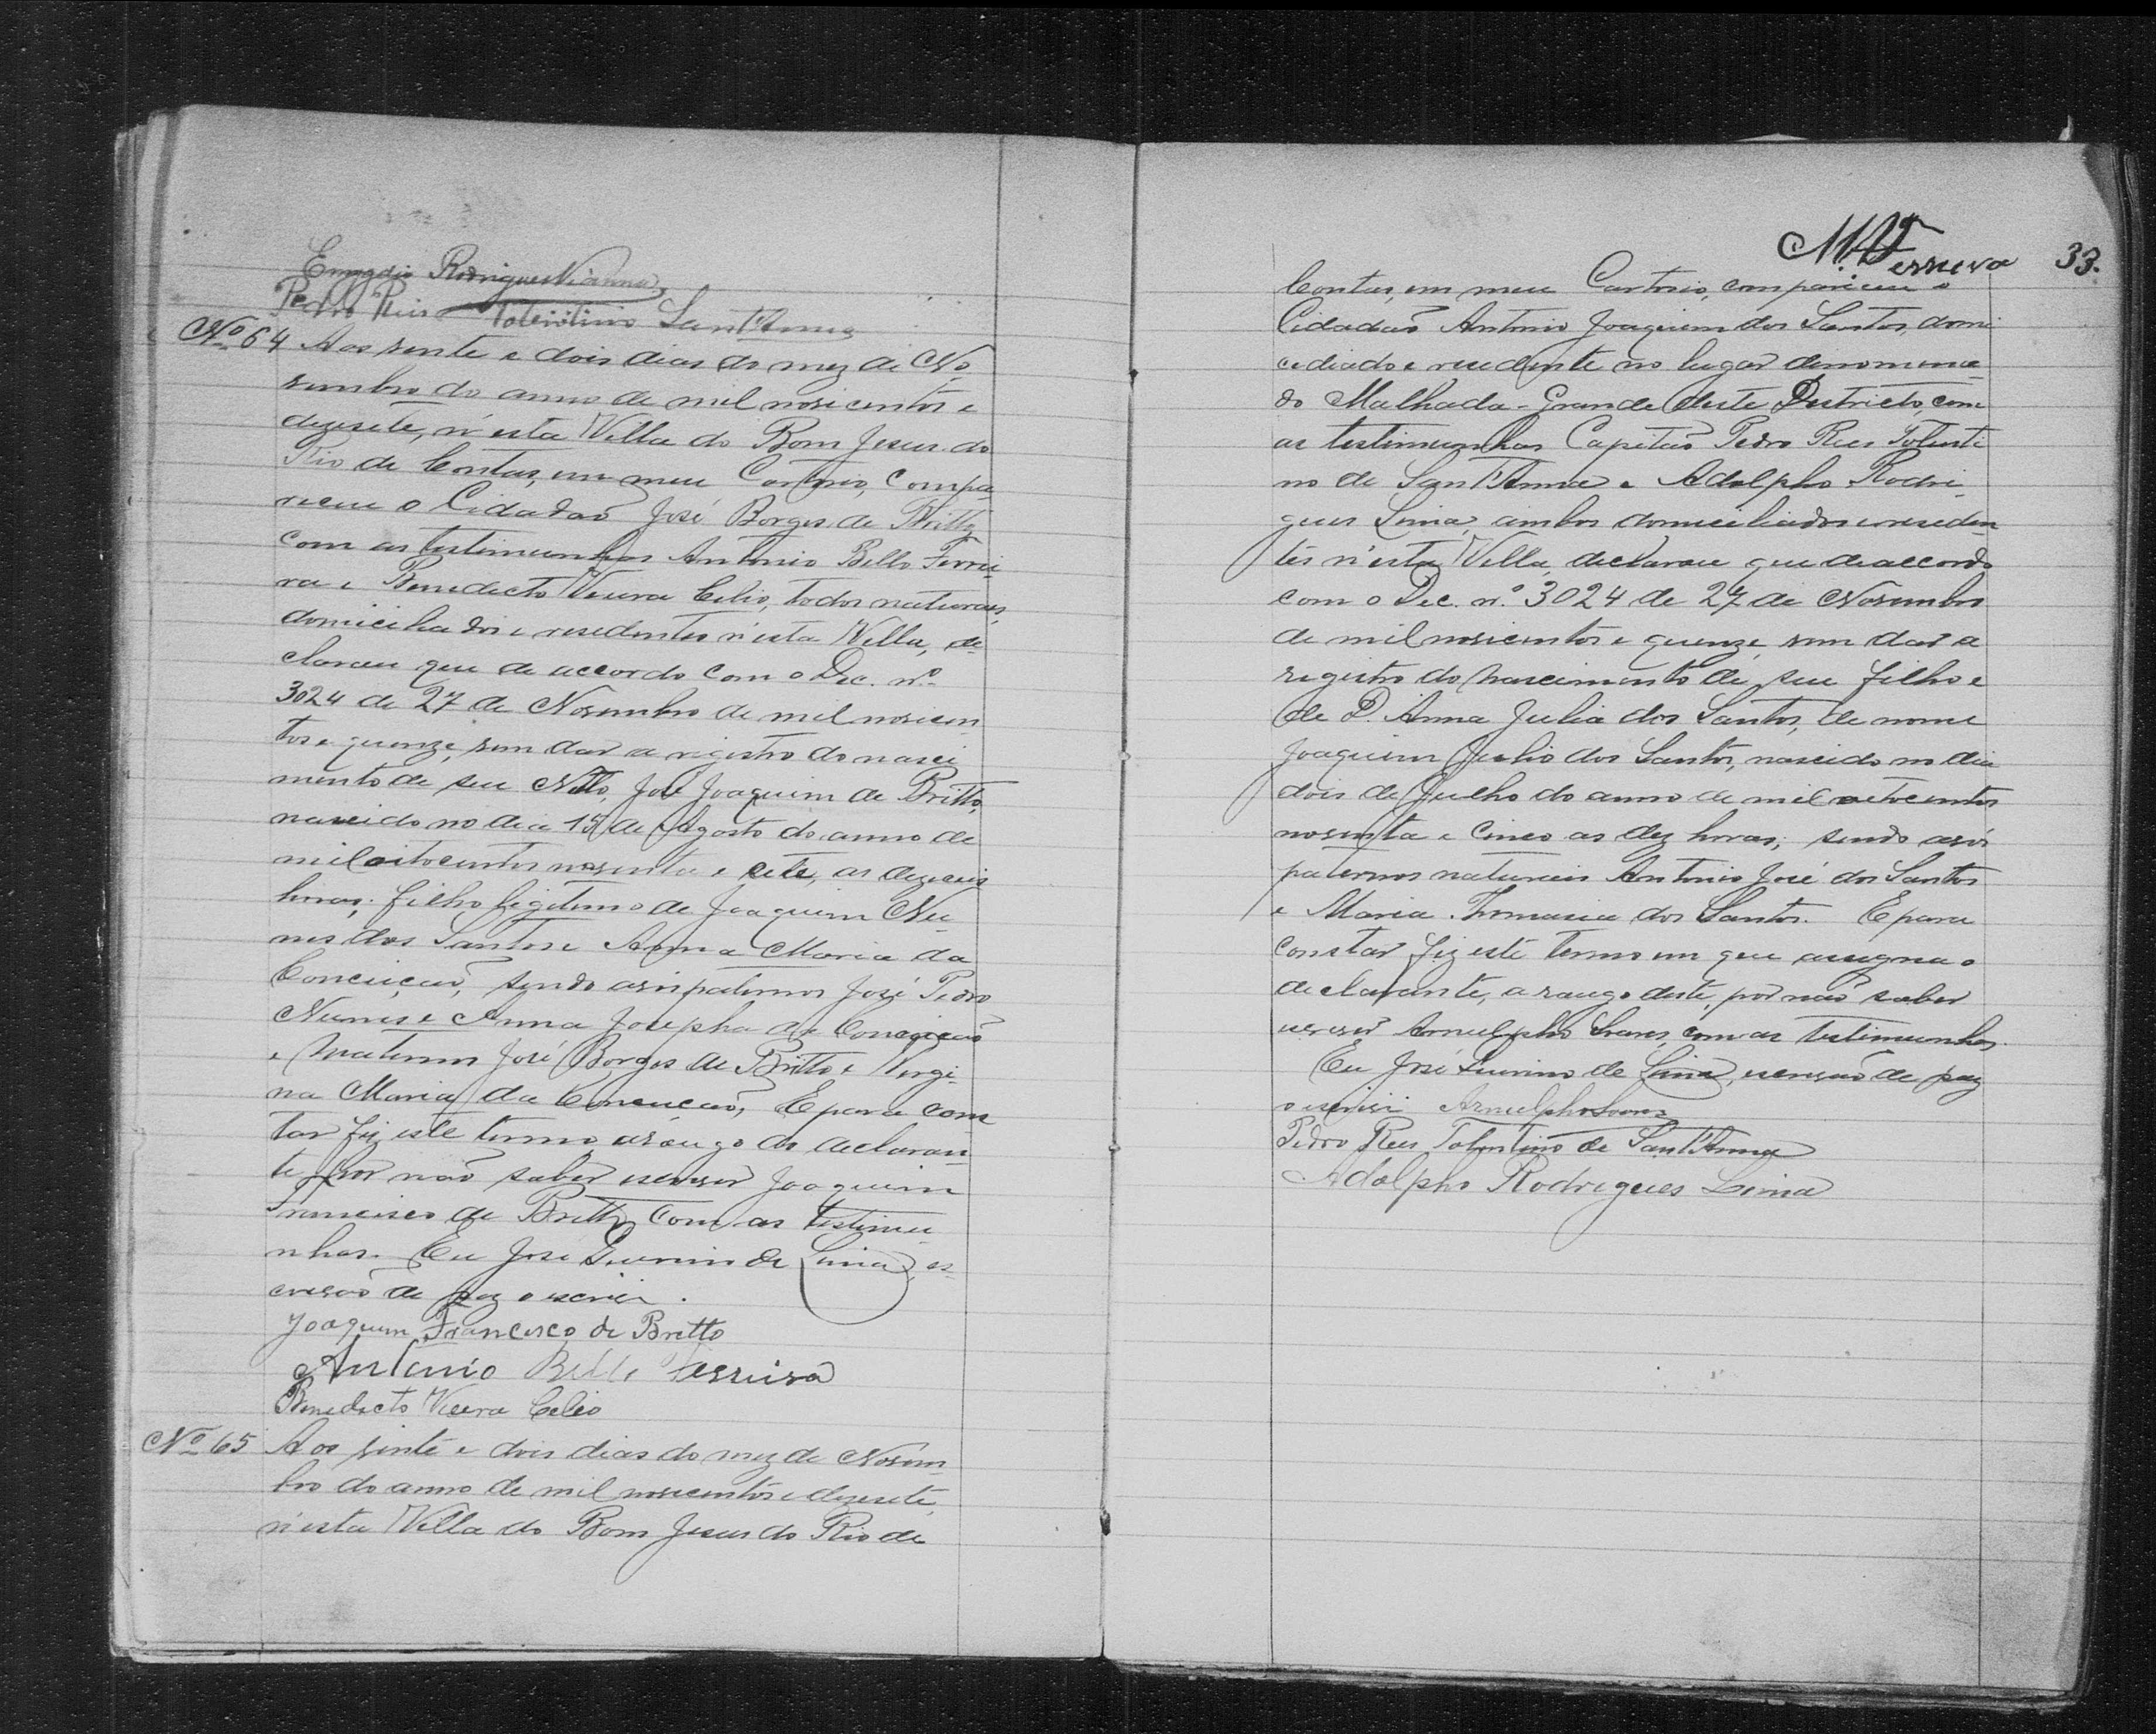 Emygdio Rodrigues Vianna
Pedro Reis Tolentino Sant'Anna
Nº 64 Aos vinte e dois dias do mez de No
vembro do anno de mil novicentos e
dezesete, n'esta Villa do Bom Jesus do
Rio de Contas, em meu Cartorio, compa
receu o Cidadaõ José Borges de Britto
com as testimunhas Antonio Bello Ferrei
ra e Benedicto Vieira Celio, todos naturaes,
domiciliados e residentes n'esta Villa, de
clarou que de accordo com o Dec. nº
3024 de 27 de Novembro de mil novicen
tos e quinze, vem dar a registro do nasci
mento de seu Netto, José Joaquim de Britto,
nascido no dia 15 de Agosto do anno de
mil oitocentos noventa e sete, as dezeseis
horas; filho legitimo de Joaquim Nu
nes dos Santos e Anna Maria da
Conceiçaõ, sendo avós paternos José Pedro
Nunes e Anna Josepha da Conceiçaõ
e maternos José Borges de Britto e Virgi
na Maria da Conceiçaõ, E para cons
tar fiz este termo, a rougo do declaran
te por naõ saber escrever Joaquim
Francisco de Britto com as testimu
nhas. Eu José Lurino de Lima, es
crivaõ de paz o escrivi.
Joaquim Francisco de Britto
Antonio Bello Ferreira
Benedicto Vieira Celio
Nº 65 Aos vinte e dois dias do mez de Novem
bro do anno de mil novicentos e dezesete,
n'esta Villa do Bom Jesus do Rio de
33.
Contas, em meu Cartorio, compareceu o
Cidadaõ Antonio Joaquim dos Santos, domi
ciliado e residente no lugar denomina
do Malhada-Grande deste Districto, com
as testimunhas Capitaõ Pedro Reis Tolenti
no de Sant'Anna e Adolpho Rodri
gues Lima, ambos domiciliados e residen
tes n'esta Villa, declarou que de accordo
com o Dec. n.º 3024 de 27 de Novembro
de mil novicentos e quinze, vem dar a
registro do nascimento de seu filho e
de D. Anna Julia dos Santos, de nome
Joaquim Julio dos Santos, nascido no dia
dois de Julho do anno de mil oitocentos
noventa e cinco as dez horas; sendo avós
paternos naturaes Antonio José dos Santos
e Maria Thomasia dos Santos. E para
constar fiz este termo em que assigna o
declarante, a rougo deste, por naõ saber
escrever Arnulpho Soares, com as testimunhas.
Eu José Lurino de Lima, escrivaõ de paz
o escrivi Arnulpho Soares
Pedro Reis Tolentino de Sant'Anna
Adolpho Rodrigues Lima